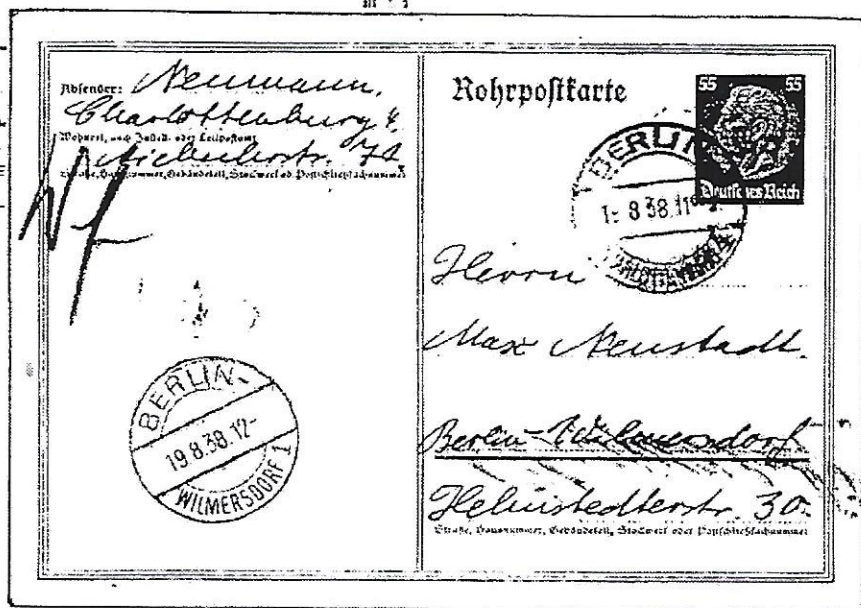 Absender: Neumann,
Charlottenburg 4,
Wohnort, auch Zustell- oder Leitpostamt
Niebuhrstr. 74.
Straße, Hausnummer, Gebäudeteil, Stockwerk od. Postschließfachnummer
BERLIN-
19.8.38.12-
WILMERSDORF 1
Rohrpostkarte
55 55
Deutsches Reich
BERLIN
8.38.11
Herrn
Max Neustadt.
Berlin-Wilmersdorf
Helmstedterstr. 30.
Straße, Hausnummer, Gebäudeteil, Stockwerk oder Postschließfachnummer